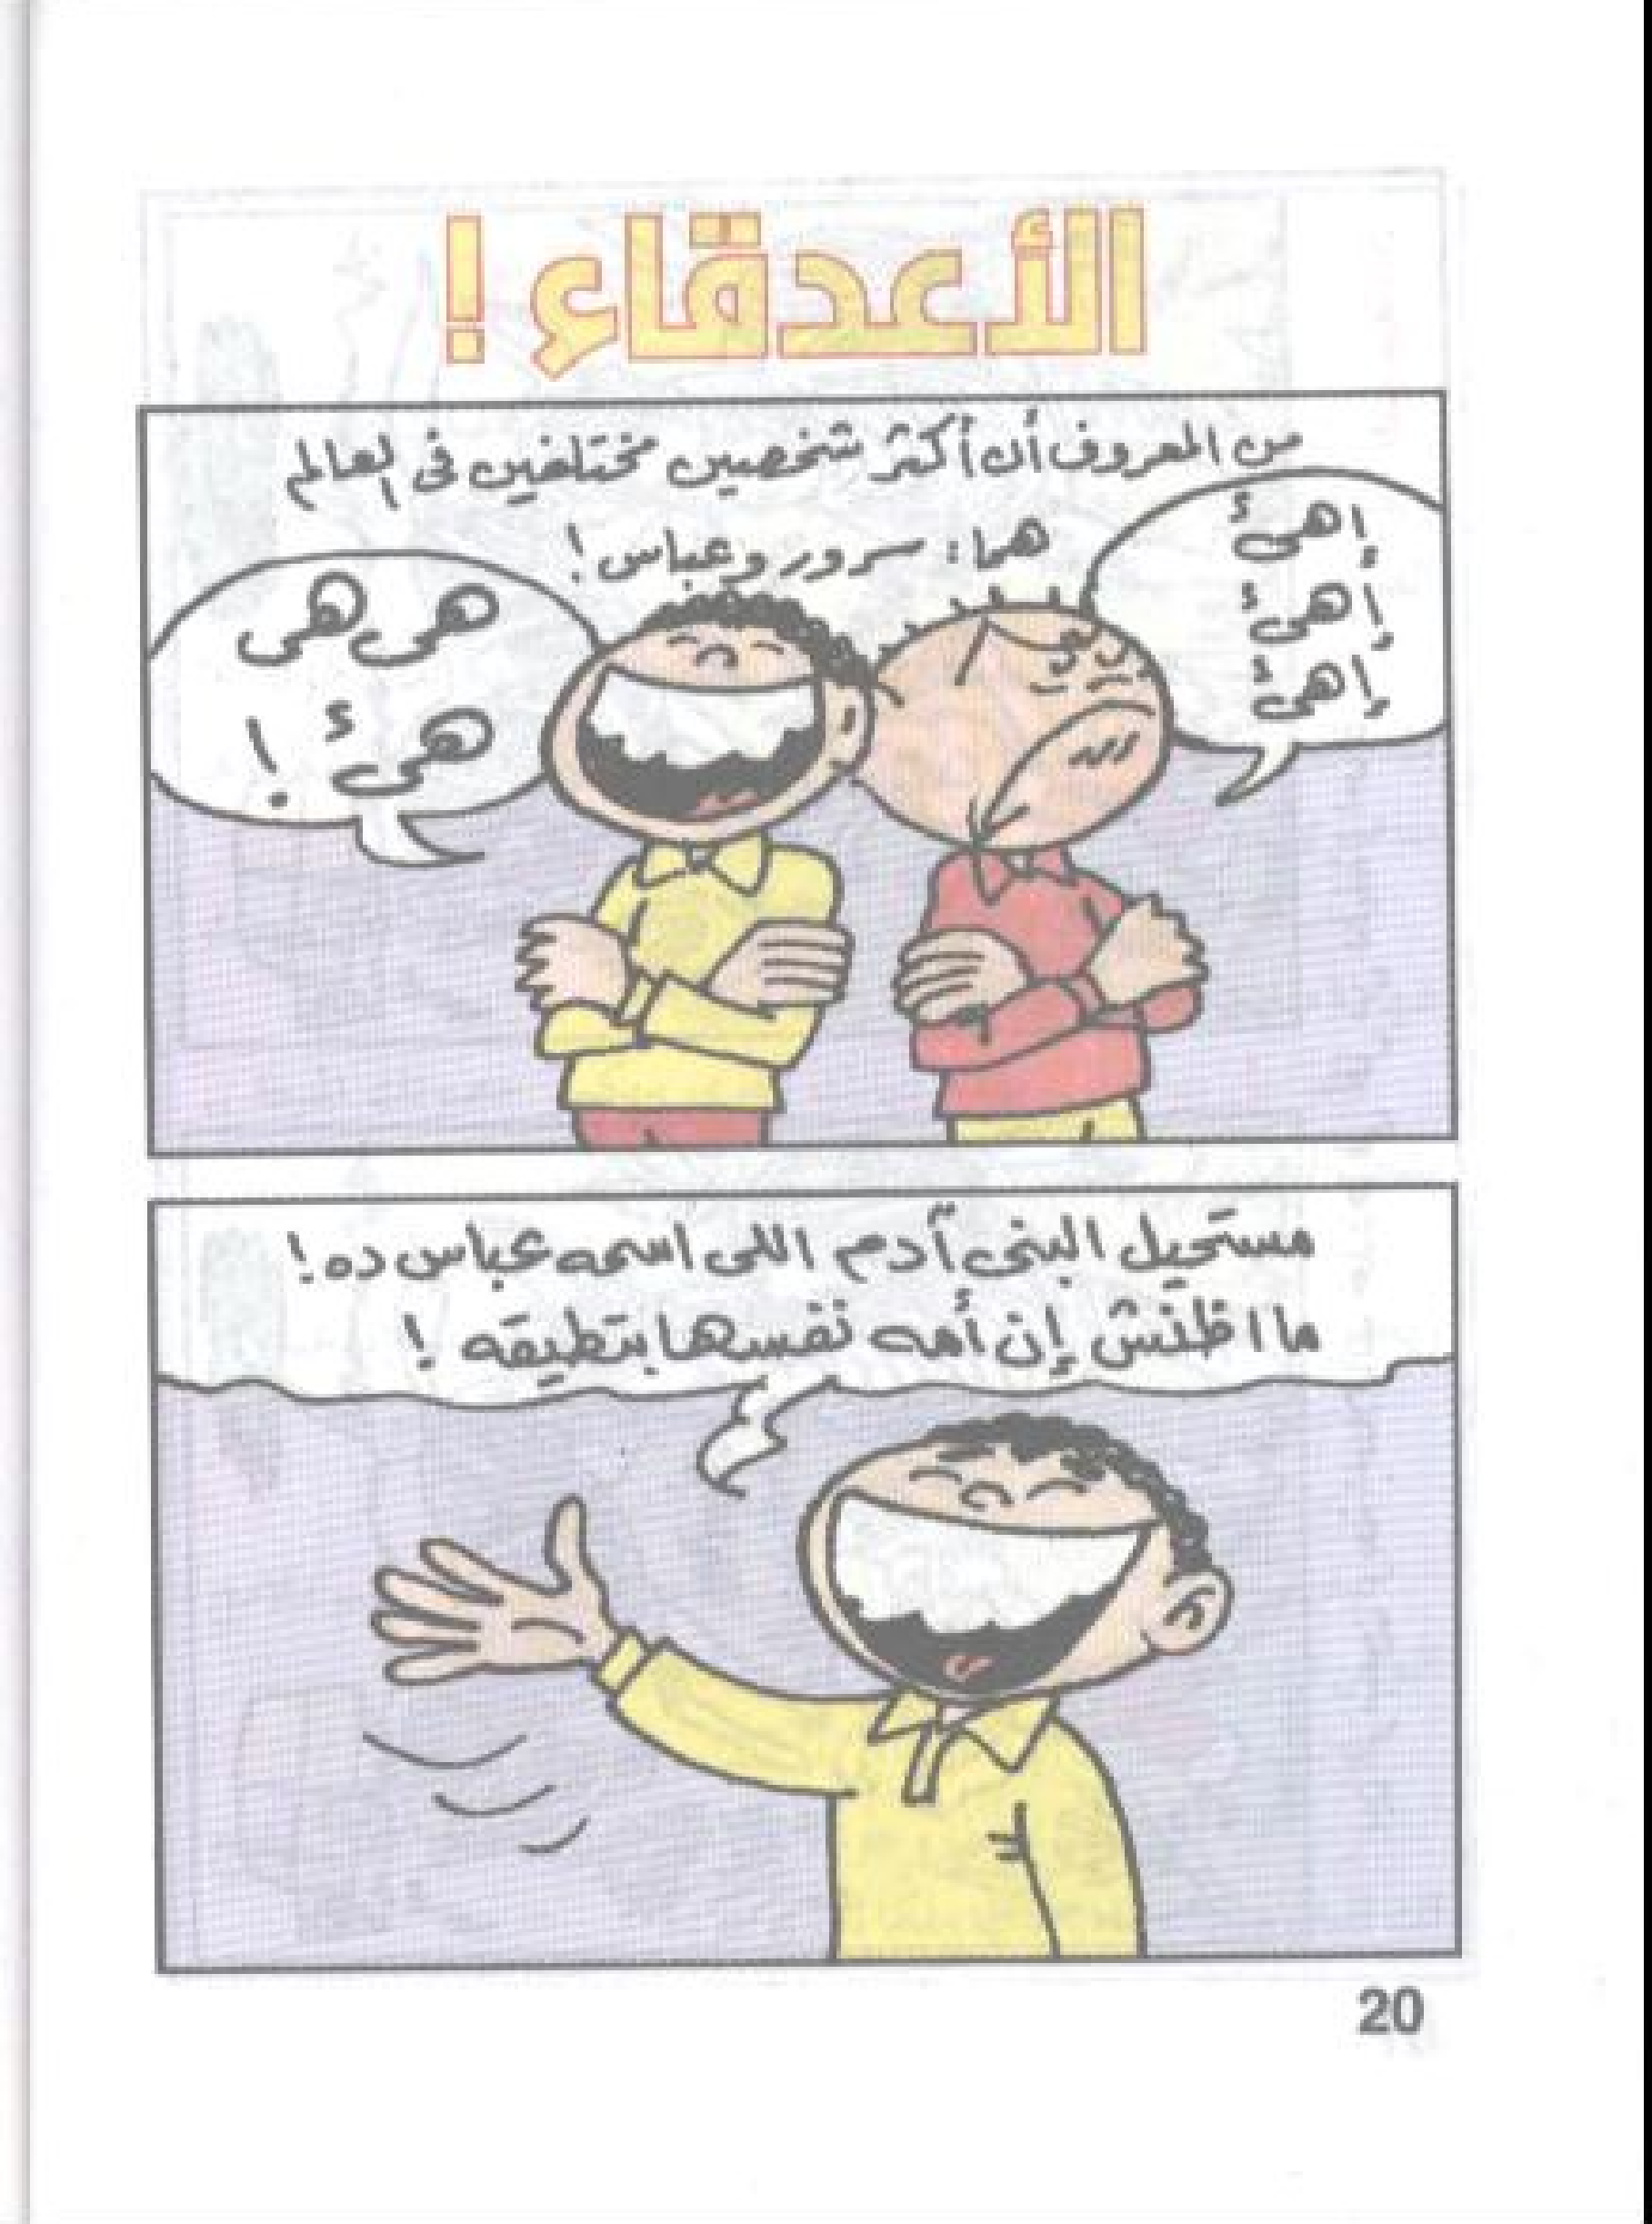 الأعدقاء!
من المعروف أن أكثر شخصين مختلفين فى العالم
هما: سرور وعباس!
إهئ
إهئ
إهئ
هى هى
هئ !
مستحيل البنى آدم اللى اسمه عباس ده!
ما اظنش إن أمه نفسها بتطيقه !
20